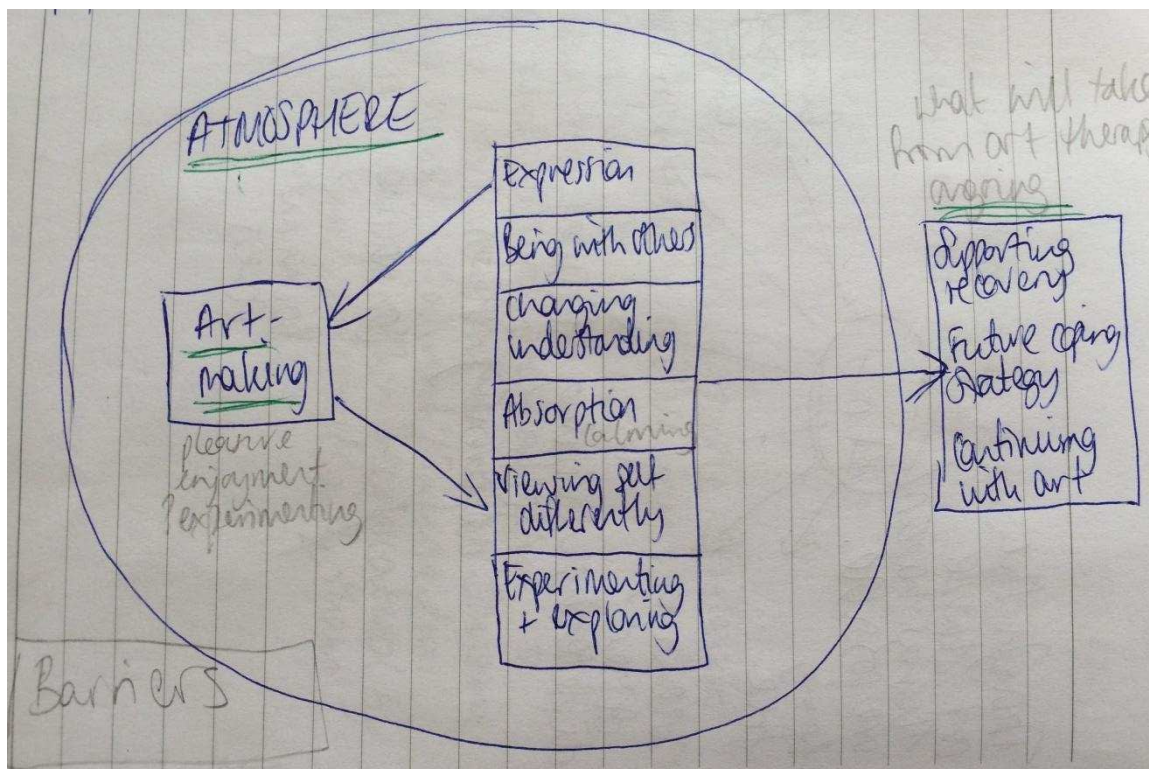 ATMOSPHERE
Art-
making
pleasure
enjoyment
?experimenting
Expression
Being with others
changing
understanding
Absorption
calming
Viewing self
differently
Experimenting
+ exploring
what will take
from art therapy
ongoing
Supporting
recovery
Future coping
strategy
Continuing
with art
Barriers